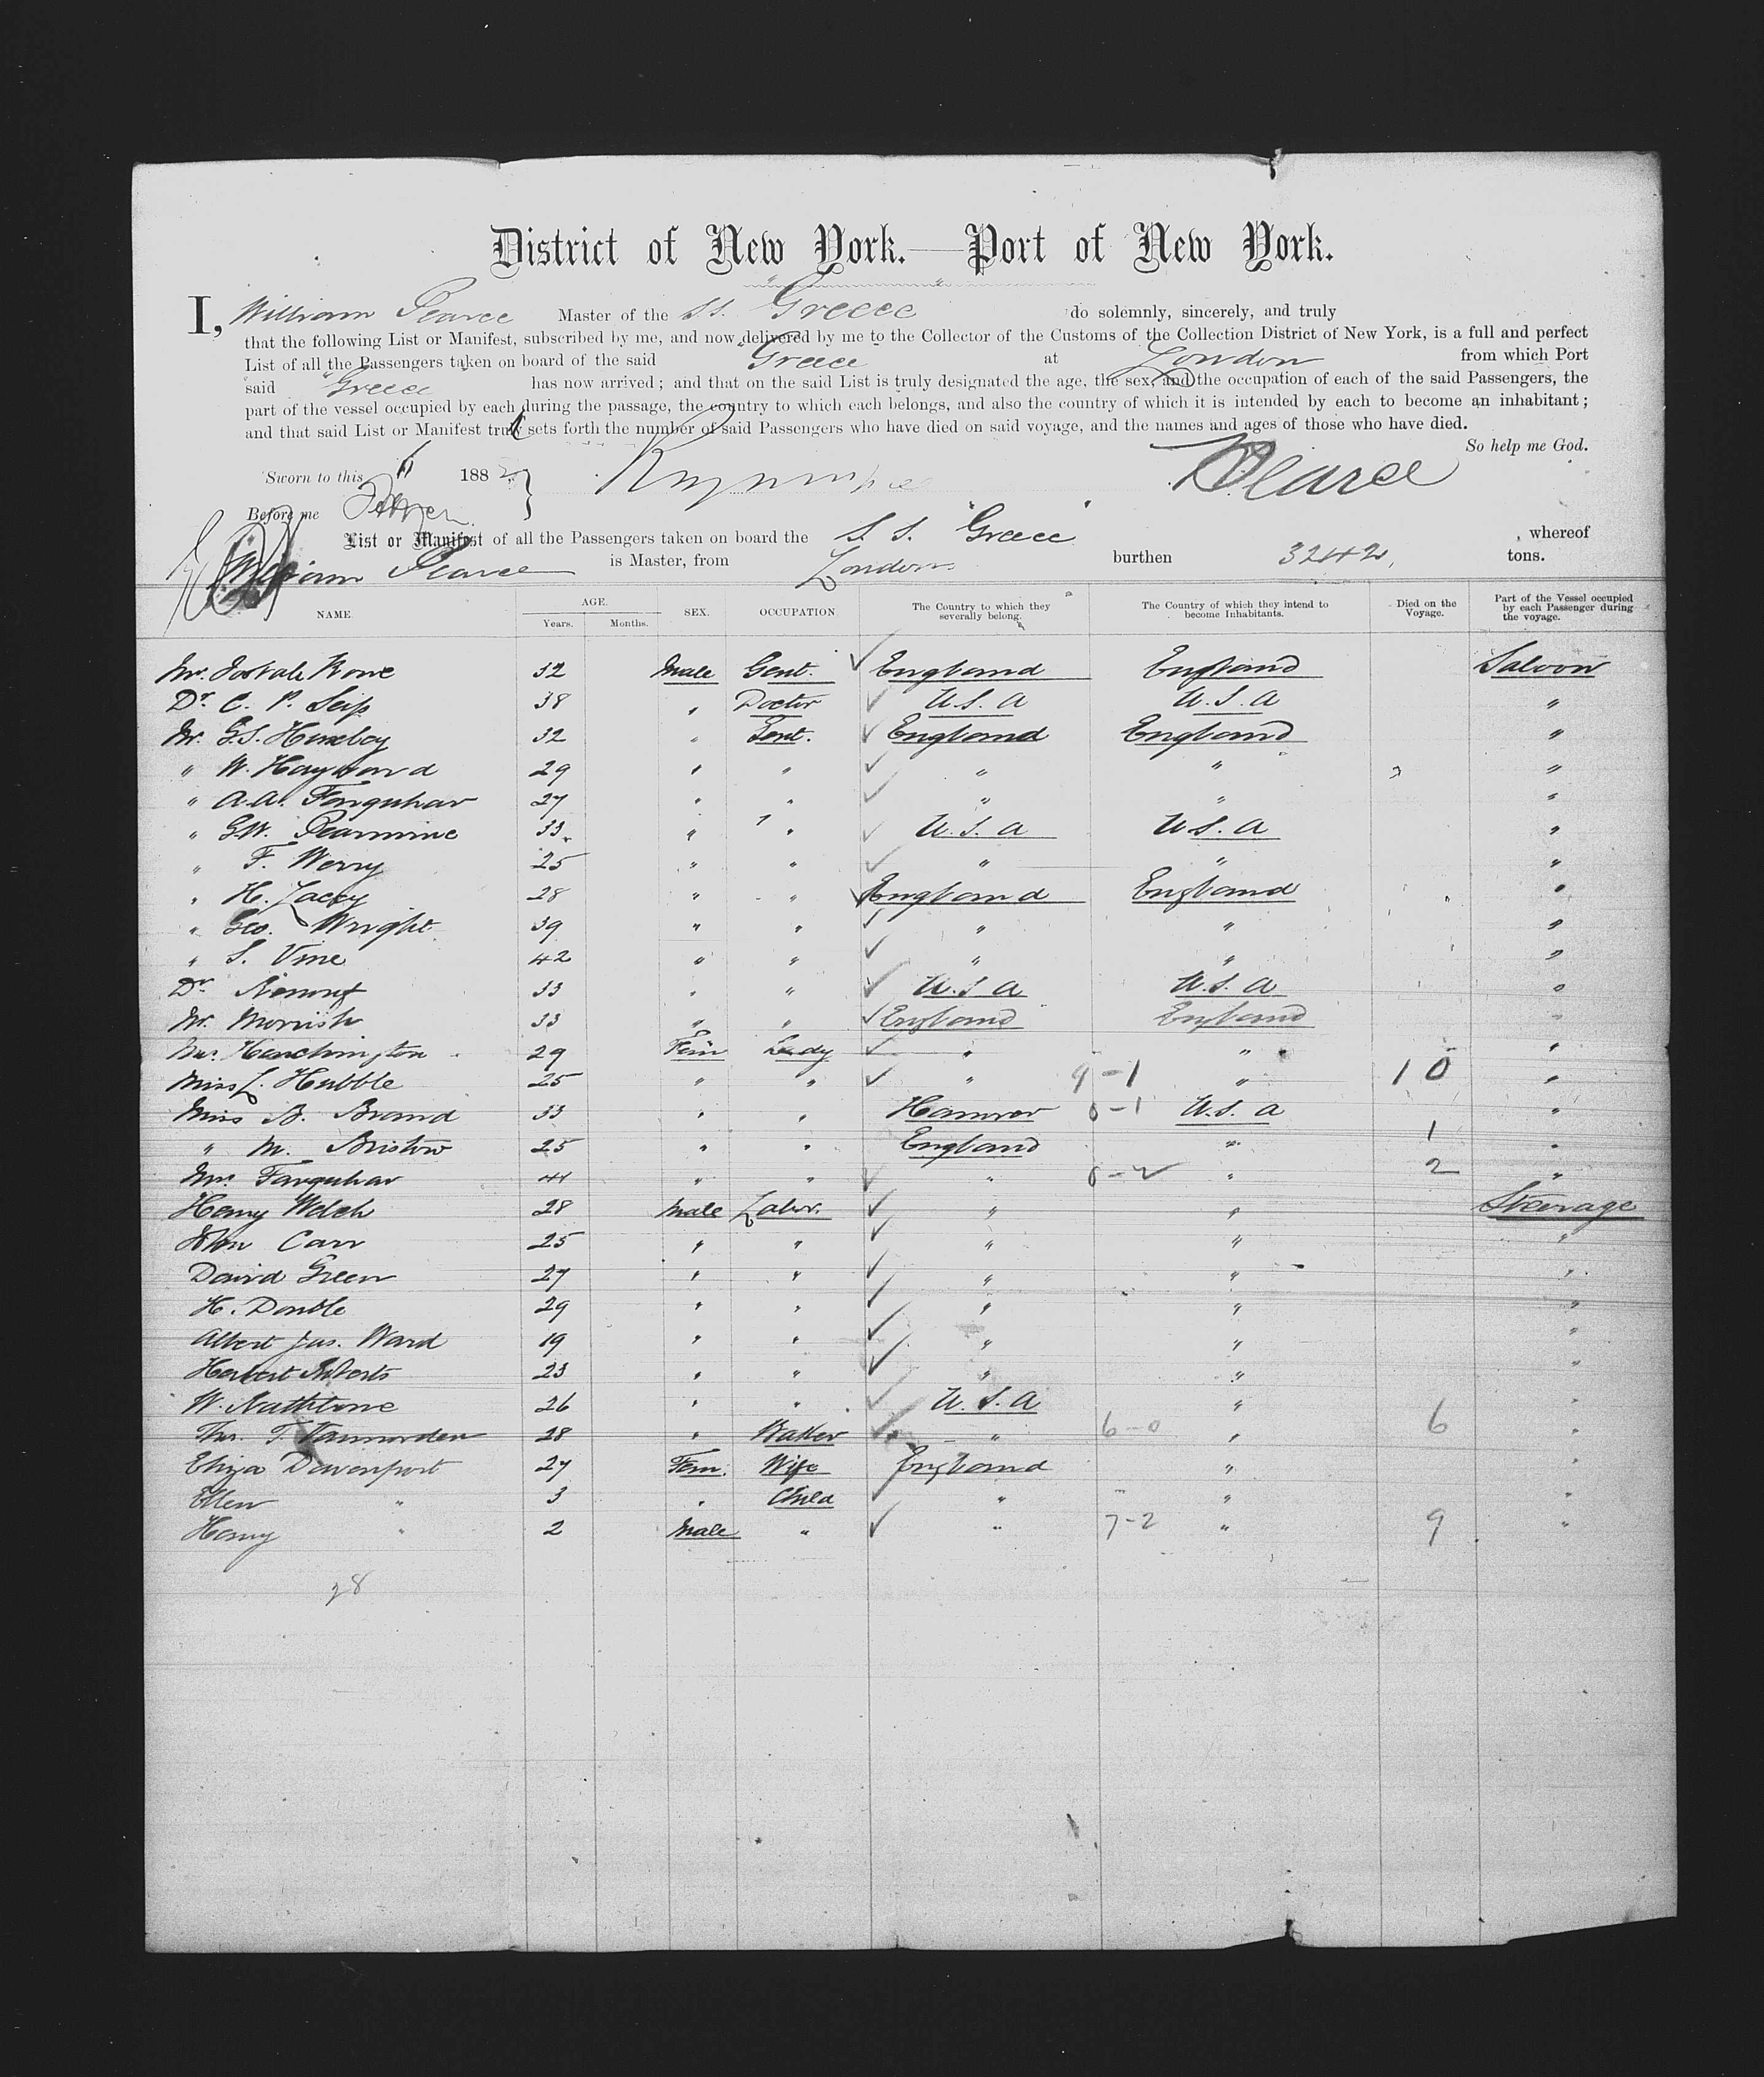 District of New York.—Port of New York.
I, William Pearce Master of the SS. "Greece" do solemnly, sincerely, and truly
that the following List or Manifest, subscribed by me, and now delivered by me to the Collector of the Customs of the Collection District of New York, is a full and perfect
List of all the Passengers taken on board of the said "Greece at London from which Port
said "Greece has now arrived; and that on the said List is truly designated the age, the sex, and the occupation of each of the said Passengers, the
part of the vessel occupied by each during the passage, the country to which each belongs, and also the country of which it is intended by each to become an inhabitant;
and that said List or Manifest truly sets forth the number of said Passengers who have died on said voyage, and the names and ages of those who have died.
So help me God.
Sworn to this 6 1882 Pearce
Before me
List or Manifest of all the Passengers taken on board the S. S. "Greece" whereof
William Pearce is Master, from London burthen 3242 tons.
NAME. AGE. Years. Months. SEX. OCCUPATION. The Country to which they severally belong. The Country of which they intend to become Inhabitants. Died on the Voyage. Part of the Vessel occupied by each Passenger during the voyage.
Mr. Rowe 32 Male Gent. England England Saloon
Dr. C. P. Seip 38 " Doctor U.S.A U.S.A "
Mr. G.S. 32 " Gent. England England "
" W. Hayward 29 " " " " "
" A.A. Farquhar 27 " " " " "
" G.W. Pearmine 33 " " U.S.A U.S.A "
" F. Werry 25 " " " " "
" H. Lacey 28 " " England England "
" Geo. Wright 39 " " " " "
" S. Vine 42 " " " " "
Dr. 33 " " U.S.A U.S.A "
Mr. Morrish 33 " " England England "
Mrs. 29 Fem Lady " " "
Miss L. Hubble 25 " " " 9-1 " 10 "
Miss B. Brand 33 " " Hanover 0-1 U.S.A "
" M. Bristow 25 " " England " 1 "
Mrs. Farquhar 44 " " " 0-2 " 2 "
Henry Welch 28 Male Labr. " " Steerage
John Carr 25 " " " " "
David Green 27 " " " " "
H. Double 29 " " " " "
Albert Jas. Ward 19 " " " " "
Herbert Roberts 23 " " " " "
W. Rathbone 26 " " U.S.A " "
Thos. T. Vannorden 28 " Baker " 6-0 " 6 "
Eliza Davenport 27 Fem. Wife England " "
Ellen " 3 " Child " " "
Henry " 2 Male " " 7-2 " 9 "
28